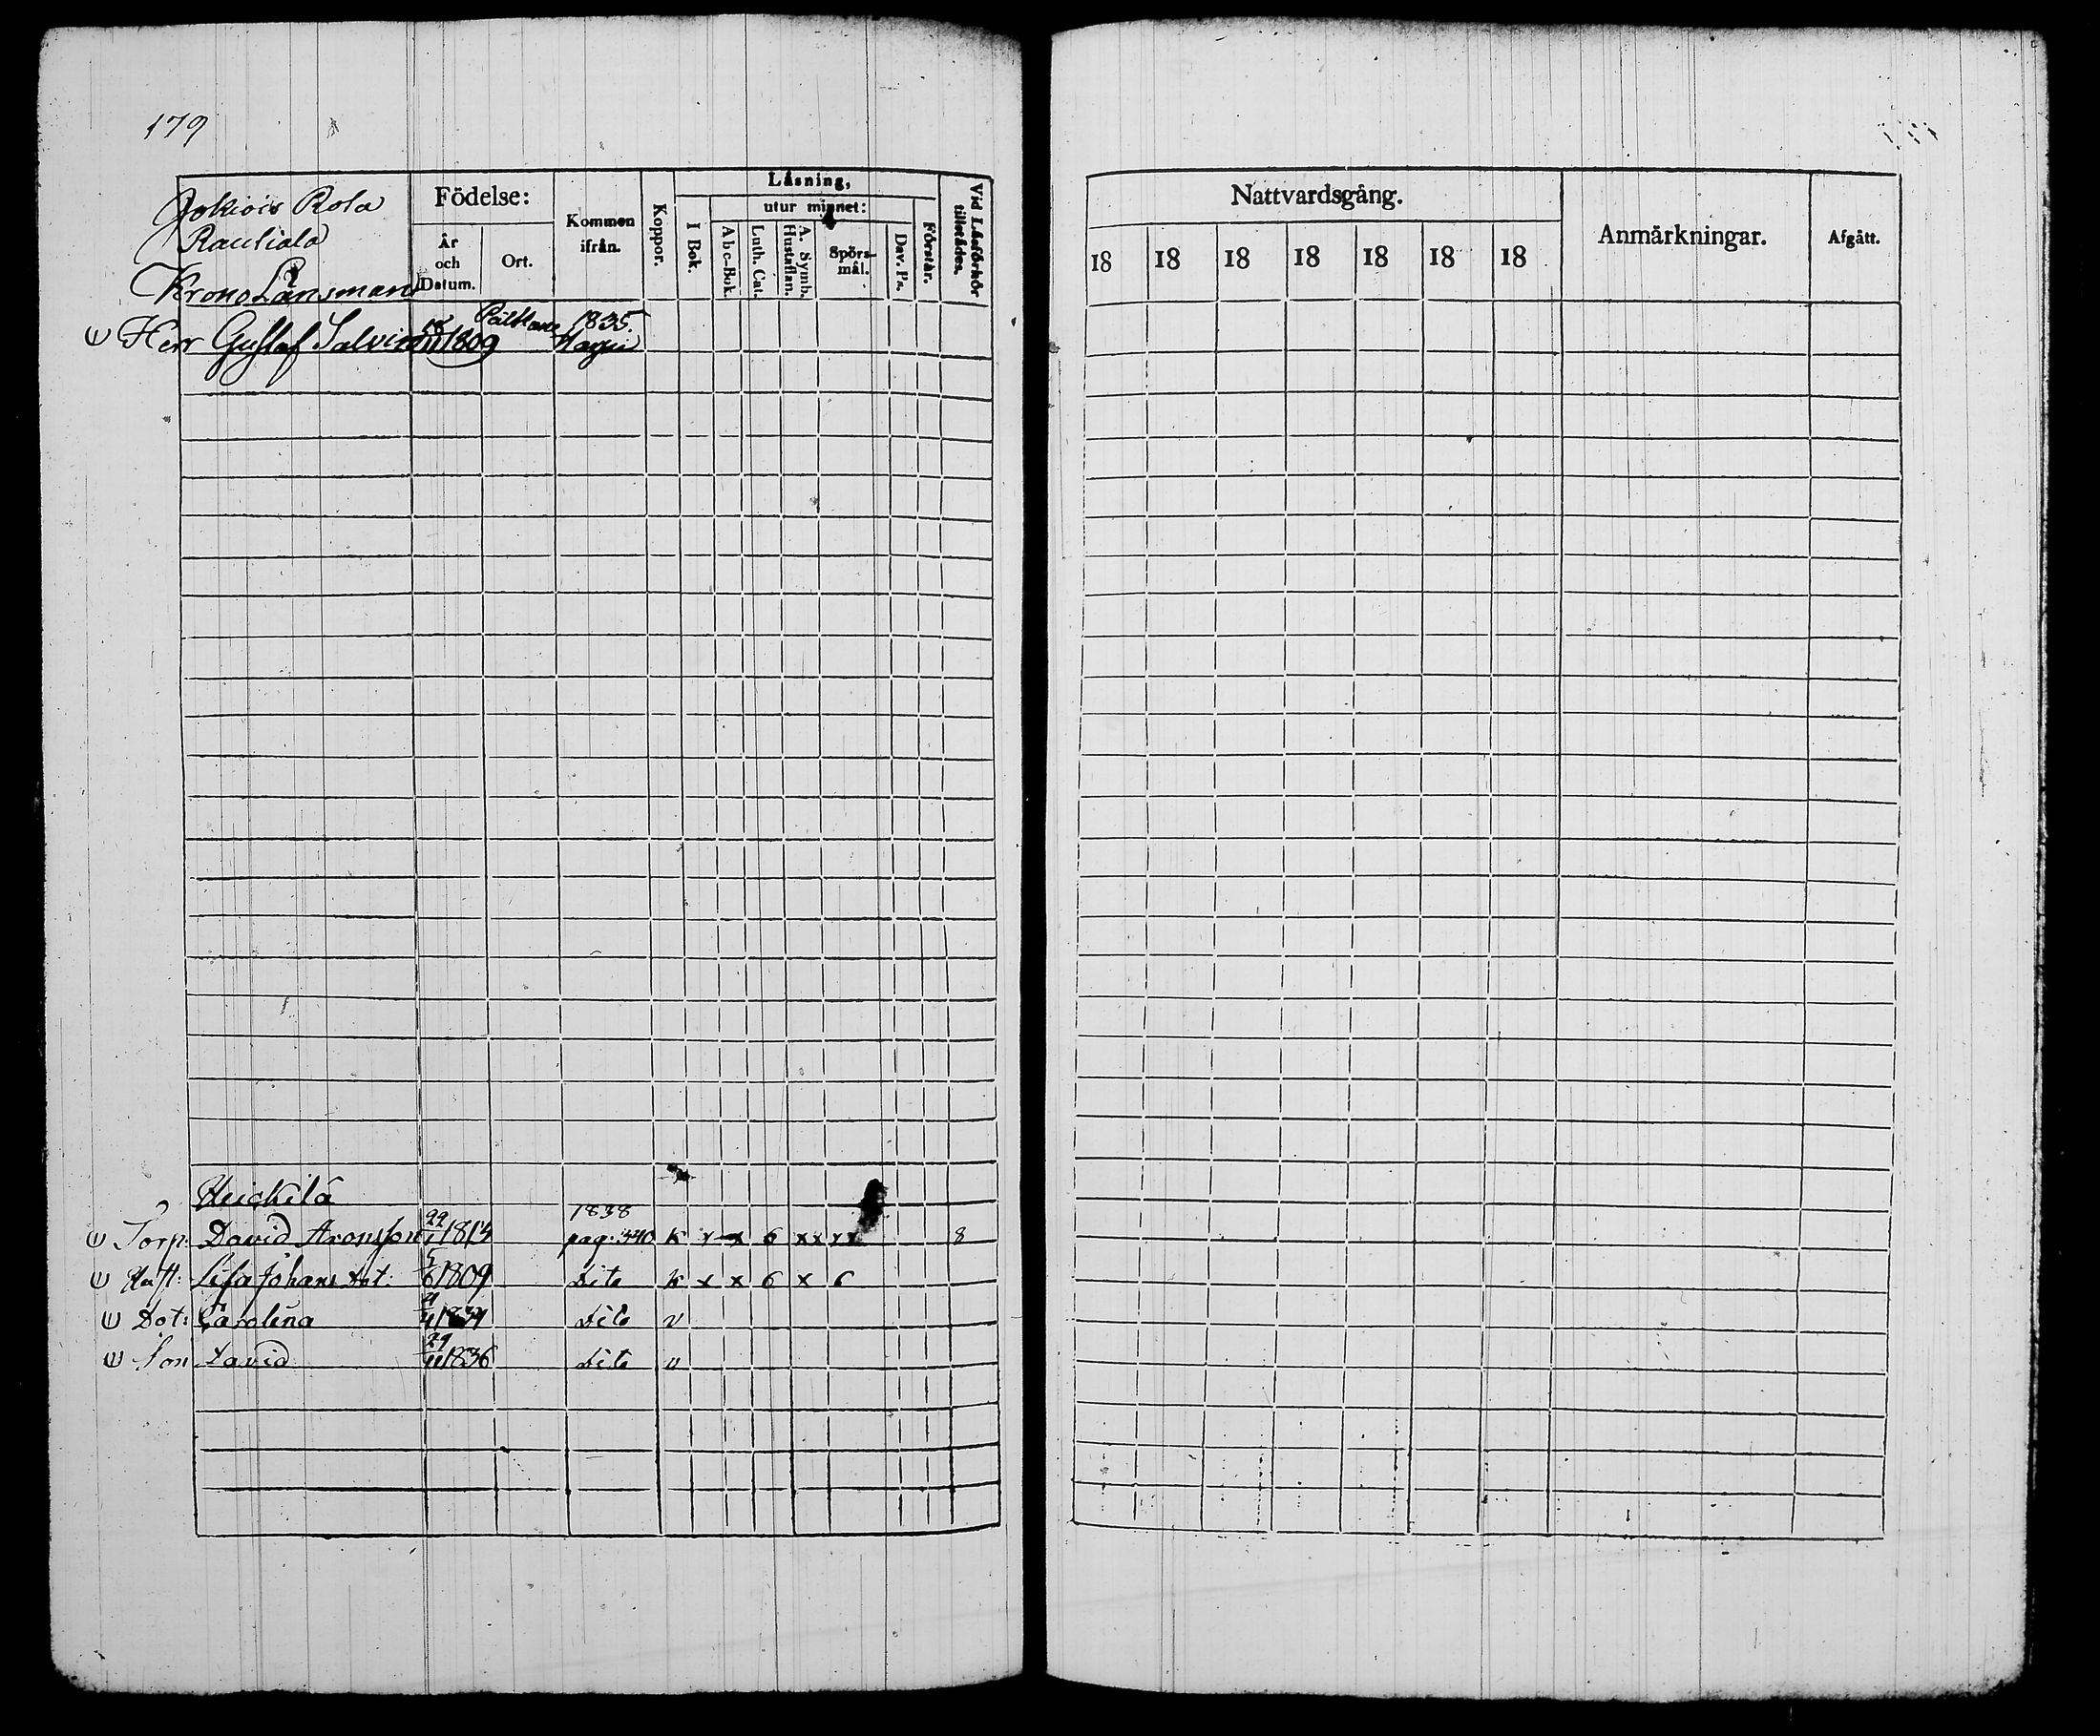 179
Jokiois Rota
Rautiala
Krono Länsman
Födelse:
År och Datum.
Ort.
Kommen ifrån.
Koppor.
Läsning,
I Bok.
utur minnet:
Abc-Bok.
Luth. Cat.
A. Symb. Hustaflan.
Spörs-mål.
Dav. Ps.
Förstår.
Vid Läsförhör tillstädes.
Herr Gustaf Salvin 18/11 1809 Pälkäne 1835.
Heickilä
Torp: David Aronsson 1813 1838 pag. 340 k x x 6 x x x x 8
Hust: Lisa Johans Dot: 5/6 1809 Dito k x x 6 x 6
Dot: Carolina Dito v
Son David 29/11 1836 Dito v
Nattvardsgång.
18 18 18 18 18 18 18
Anmärkningar.
Afgått.